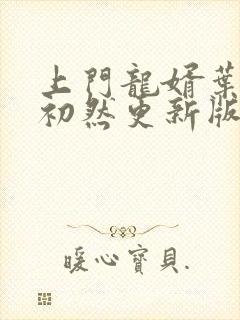 上門龍婿葉
初然更新版
暖心寶貝.